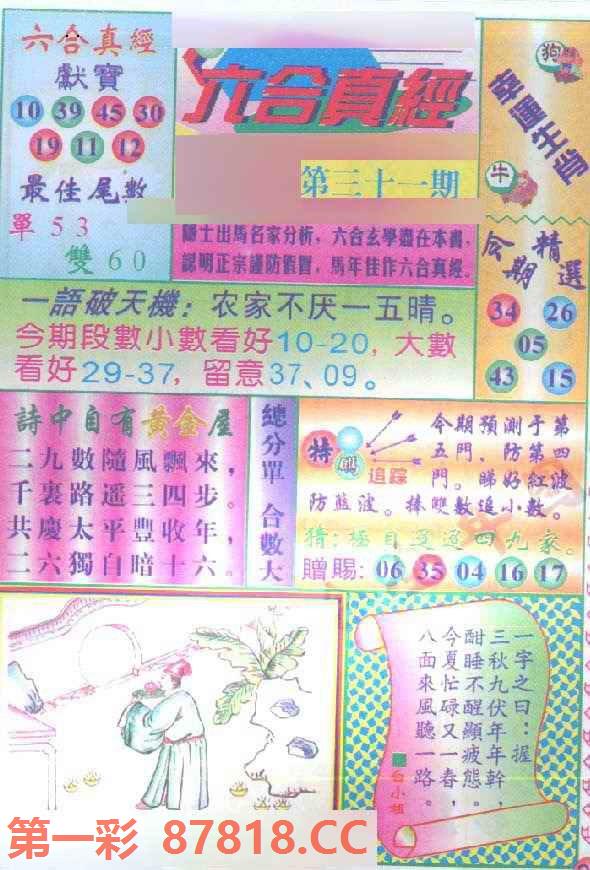 六合真經
獻寶
10 39 45 30
19 11 12
最佳尾數
單 53
雙 60
六合真經
第三十一期
士出馬名家分析，六合玄學盡在本書，
認明正宗謹防假冒，馬年佳作六合真經。
狗
幸運生肖
牛
今期精選
34 26
05
43 15
一語破天機：农家不厌一五晴。
今期段數小數看好10-20，大數
看好29-37，留意37、09。
詩中自有黃金屋
二九數隨風飄來，
千裏路遥三四步。
共慶太平豐收年，
二六獨自暗十六。
總分單 合數大
特 追踪
今期預測于第
五門、防第四
門。睇好紅波
防藍波。捧雙數追小數。
猜：極目 四九家。
贈賜：06 35 04 16 17
一字之曰：握
三秋九伏年年幹，
酣睡不醒顯疲態。
今夏忙碌又一春，
八面來風聽一路。
台小姐
第一彩 87818.CC